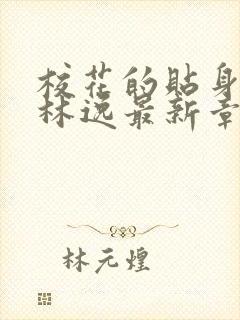 校花的貼身
林逸最新章
林元煌